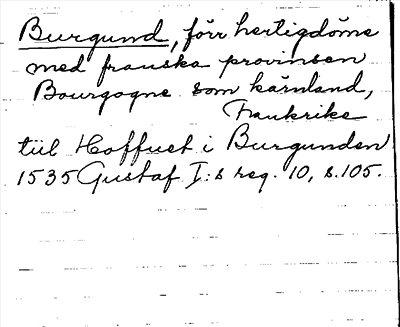 Burgund, förr hertigdöme
med franska provinsen
Bourgogne som kärnland,
Frankrike
tiil Hoffuet i Burgunden
1535 Gustaf I:s reg. 10, s. 105.